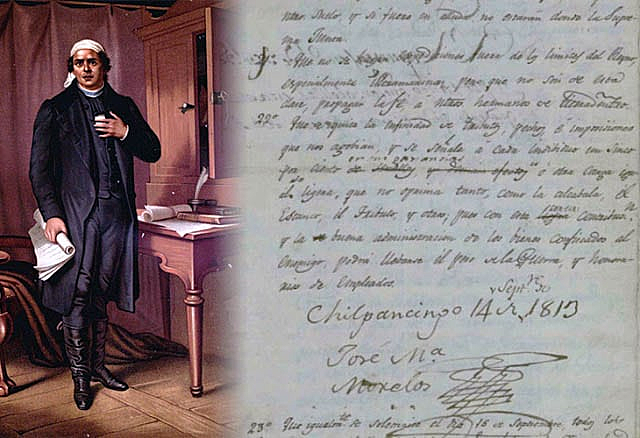 ntro suelo, y si fuere en ayuda no estarán donde la Supre
ma Junta.
Que no se hagan expediciones fuera de los limites del Reyno,
especialmente Ultramarinas, pero que no son de esta
clase, propagar la fé a ntros hermanos de tierradentro.
22º Que se quite la infinidad de tributos, pechos é imposiciones
que nos agobian, y se señale á cada individuo un cinco
por ciento de
en sus ganancias ó otra carga igual
ligera, que no oprima tanto, como la alcabala, el
Estanco, el Tributo, y otros, pues con esta corta contribucion
y la buena administracion de los bienes confiscados al
enemigo, podrá llebarse el peso de la Guerra, y honora-
rios de Empleados.
Chilpancingo 14 de Septre de 1813
José Ma
Morelos
23º Que igualmte se solemnice el dia 16 de Septiembre, todos los